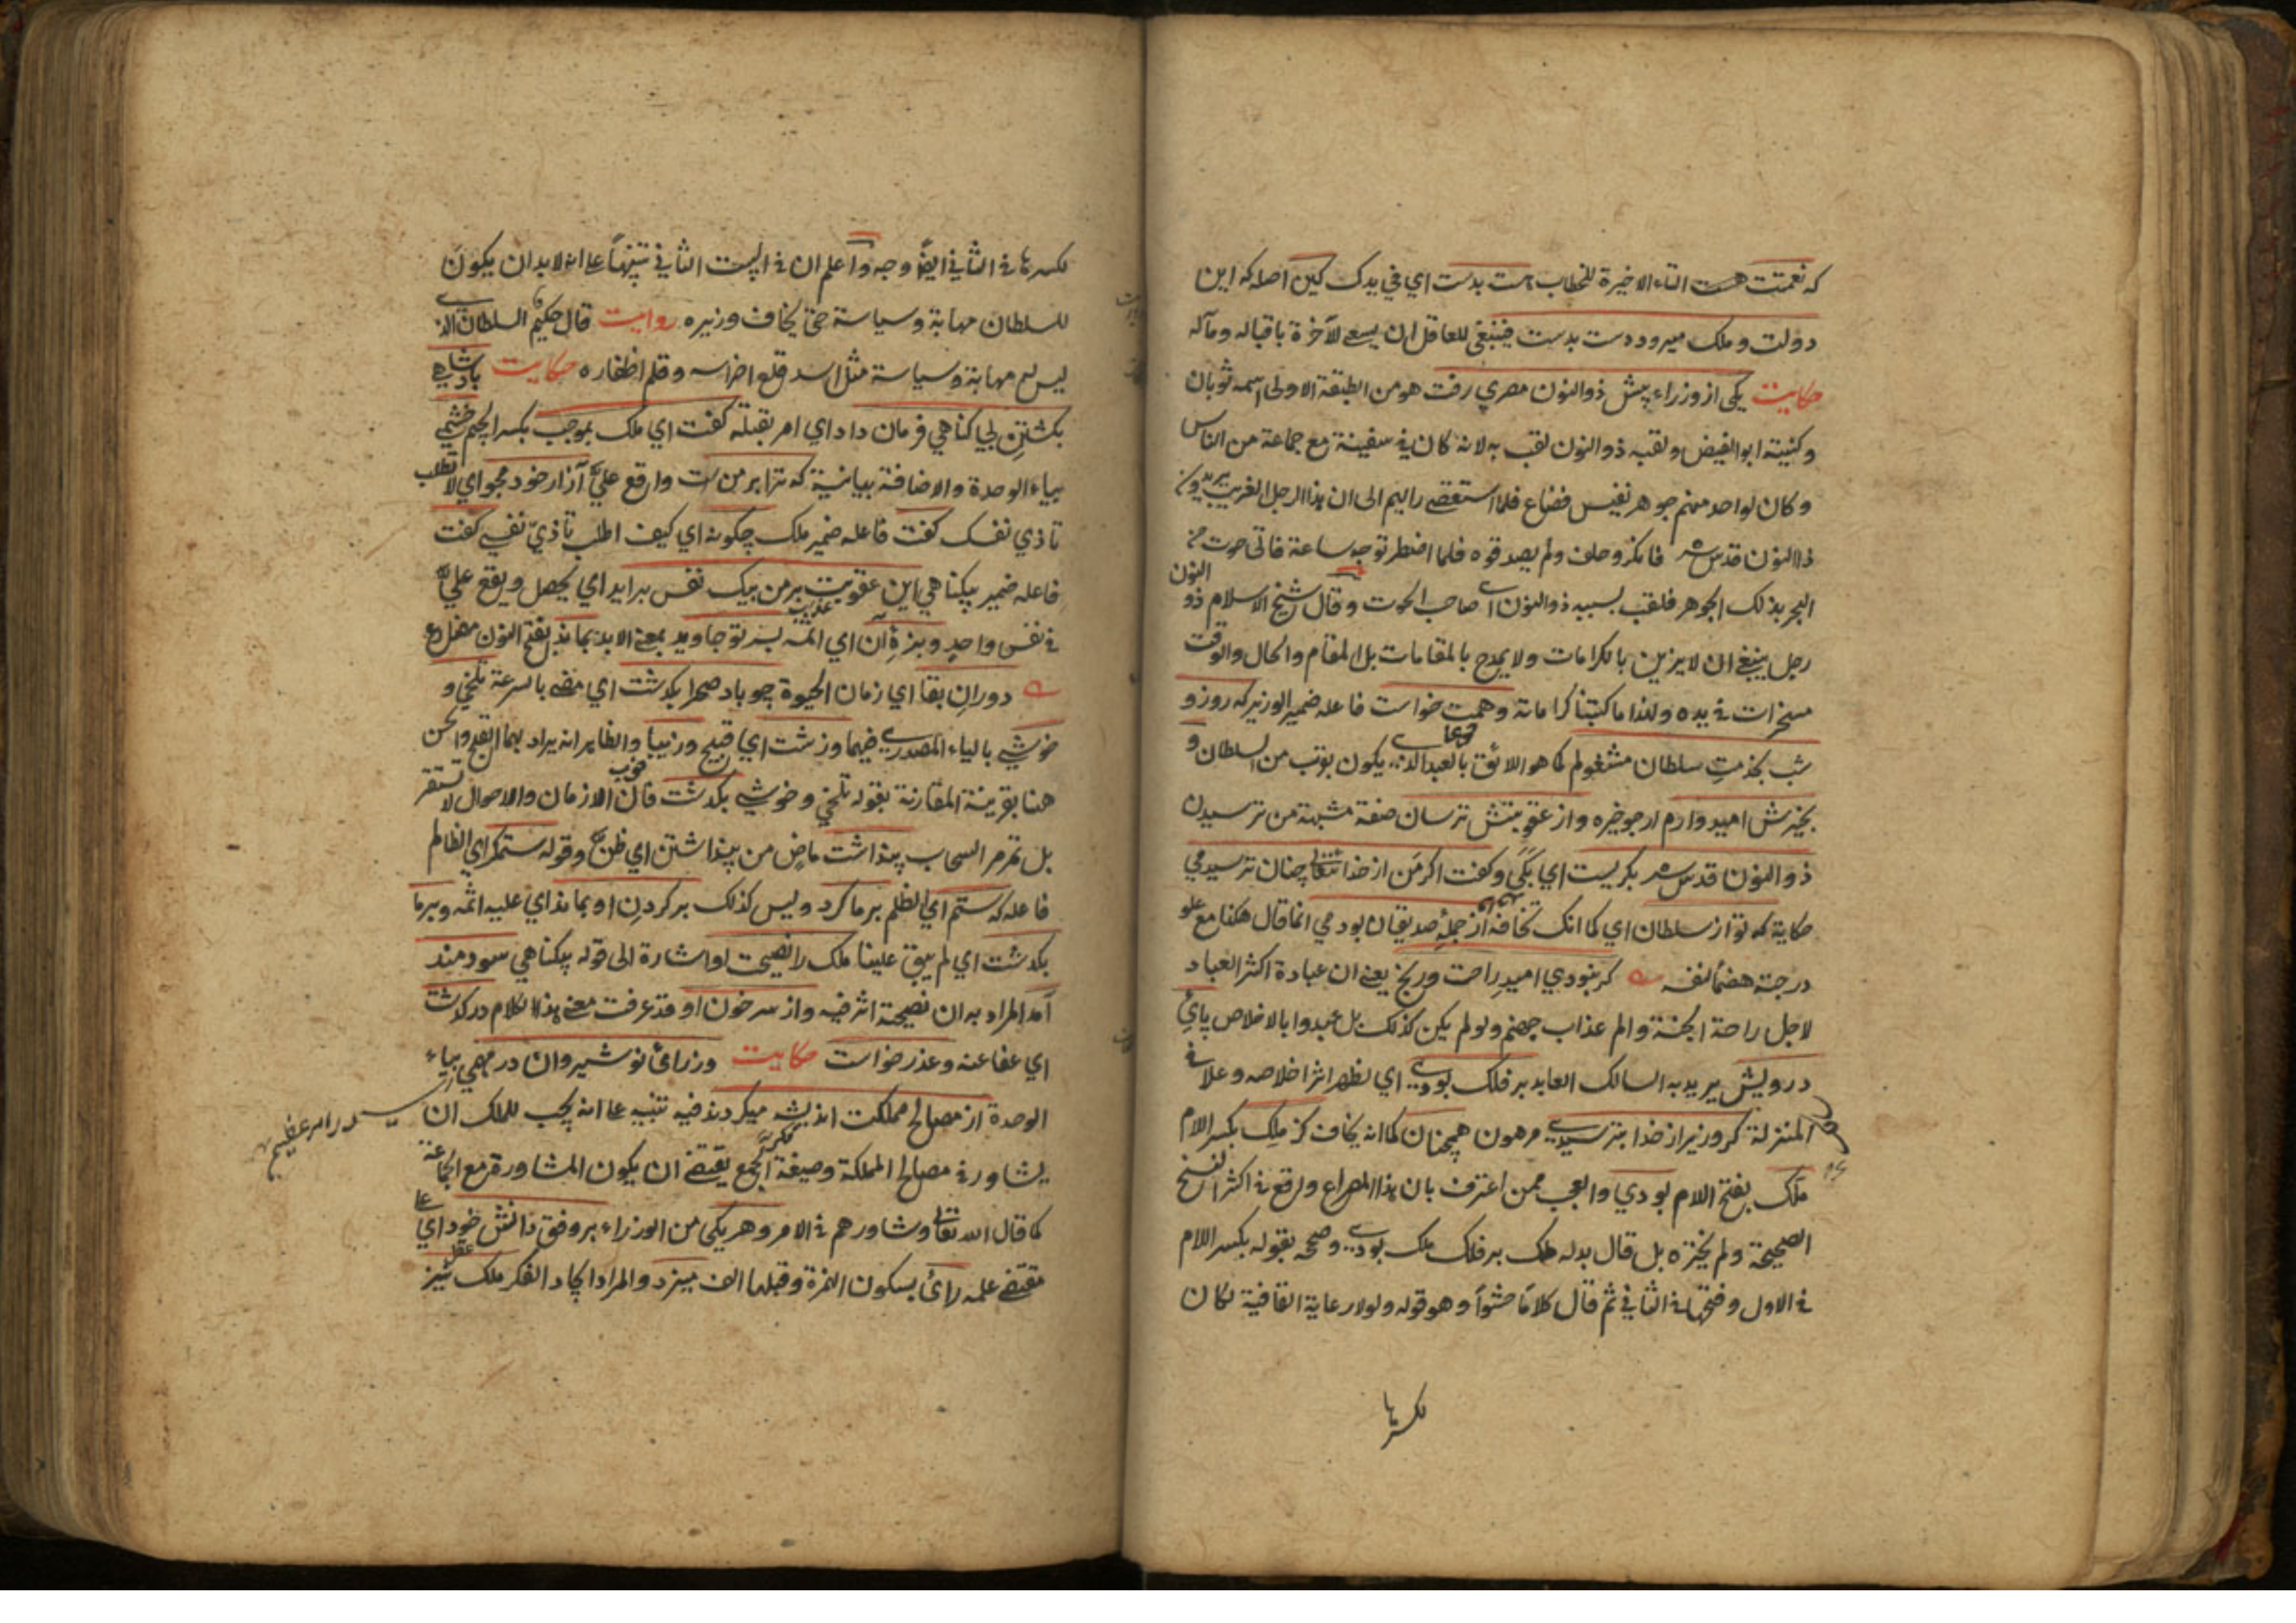 که نعمتت هست التاء الاخیرة للخطاب هست بدست ای فی یدک کین اصله که این
دولت و ملک میرود دست بدست فینبغی للعاقل ان یسعی لآخرة باقباله ومآله
حکایت یکی از وزراء پیش ذو النون مصری رفت هو من الطبقة الاولی اسمه ثوبان
وکنیته ابو الفیض ولقبه ذو النون لقب به لانه کان فی سفینة مع جماعة من الناس
وکان لواحد منهم جوهر نفیس فضاع فلما استقصی رایهم الی ان هذا الرجل الغریب
ذا النون قدس سره فانکر وحلف ولم یصدقوه فلما اضطر توجه ساعة فاتی حوت من
البحر بذلک الجوهر فلقب بسببه ذو النون ای صاحب الحوت وقال شیخ الاسلام ذو النون
رجل ینبغی ان لا یزین بالکرامات ولا یمدح بالمقامات بل المقام والحال والوقت
مسخرات فی یده ولهذا ما کتبنا کراماته وهمت خواست فاعله ضمیر الوزیر که روز و
شب بخدمت سلطان مشغولم کما هو اللائق بالعبد الذی یکون بقرب من السلطان و
بخیرش امیدوارم ارجو خیره واز عقوبتش ترسان صفة مشبهة من ترسیدن
ذو النون قدس سره بکریست ای بکی وکفت اکر من از خدا تعالی چنان ترسیدمی
حکایة که تو از سلطان ای کما انک تخافه از جملهٔ صدیقان بودمی انما قال هکذا مع علو
درجته هضما لنفسه کر نبودی امید راحت ورنج یعنی ان عبادة اکثر العباد
لاجل راحة الجنة والم عذاب جهنم ولو لم یکن کذلک بل عبدوا بالاخلاص پای
درویش یرید به السالک العابد بر فلک بودی ای لظهر اثر اخلاصه وعلا فی
المنزلة کر وزیر از خدا بترسیدی مرهون همچنان کما انه یخاف کز ملک بکسر اللام
ملک بفتح اللام بودی والعجب ممن اعترف بان هذا المصراع وقع فی اکثر النسخ
الصحیحة ولم یختره بل قال بدله ملک بر فلک ملک بودی وصححه بقوله بکسر اللام
فی الاول وفتحها فی الثانی ثم قال کلاما حشوا وهو قوله ولولا رعایة القافیة لکان
لکسرها
لکسرها فی الثانی ایضا وجه واعلم ان فی البیت الثانی تنبیها علی انه لابد ان یکون
للسلطان مهابة وسیاسة حتی یخاف وزیره روایت قال حکیم السلطان الذی
لیس له مهابة وسیاسة مثل اسد قلع اضراسه وقلم اظفاره حکایت پادشاهی
بکشتن بی کناهی فرمان داد ای امر بقتله کفت ای ملک بموجب بکسر الجیم خشمی
بیاء الوحدة والاضافة بیانیة که ترا بر من است واقع علیّ آزار خود مجو ای لا تطلب
تاذی نفسک کفت فاعله ضمیر ملک چکونه ای کیف اطلب تاذی نفسی کفت
فاعله ضمیر بیکناهی این عقوبت بر من بیک نفس برآید ای یحصل ویقع علیّ
فی نفس واحد وبزهٔ آن ای اثمه بر تو جاوید بمعنی الابد بماند بفتح النون مضارع
دوران بقا ای زمان الحیوة چو باد صحرا بکذشت ای مضی بالسرعة تلخی و
خوشی بالیاء المصدری فیهما وزشت ای قبیح وزیبا والظاهر انه یراد بهما القبح والحسن
هنا بقرینة المقارنة بقوله تلخی وخوشی بکذشت فان الازمان والاحوال لا تستقر
بل تمر مر السحاب پنداشت ماض من پنداشتن ای ظن وقوله ستمکر ای الظالم
فاعله که ستم ای الظلم بر ما کرد ولیس کذلک بر کردن او بماند ای علیه اثمه وبر ما
بکذشت ای لم یبق علینا ملک را نصیحت او اشارة الی قوله بیکناهی سودمند
آمد المراد به ان نصیحته اثر فیه واز سر خون او قد عرفت معنی هذا الکلام درکذشت
ای عفا عنه وعذر خواست حکایت وزراء نوشیروان در مهمی بیاء
الوحدة از مصالح مملکت اندیشه میکردند فیه تنبیه علی انه یجب للملک ان
یشاور فی مصالح المملکة وصیغة الجمع یقتضی ان یکون المشاورة مع الجماعة
کما قال الله تعالی وشاورهم فی الامر وهر یکی من الوزراء بر وفق دانش خود ای علی
مقتضی علمه رائ بسکون الهمزة وقبلها الف میزد والمراد ایجاد الفکر ملک نیز